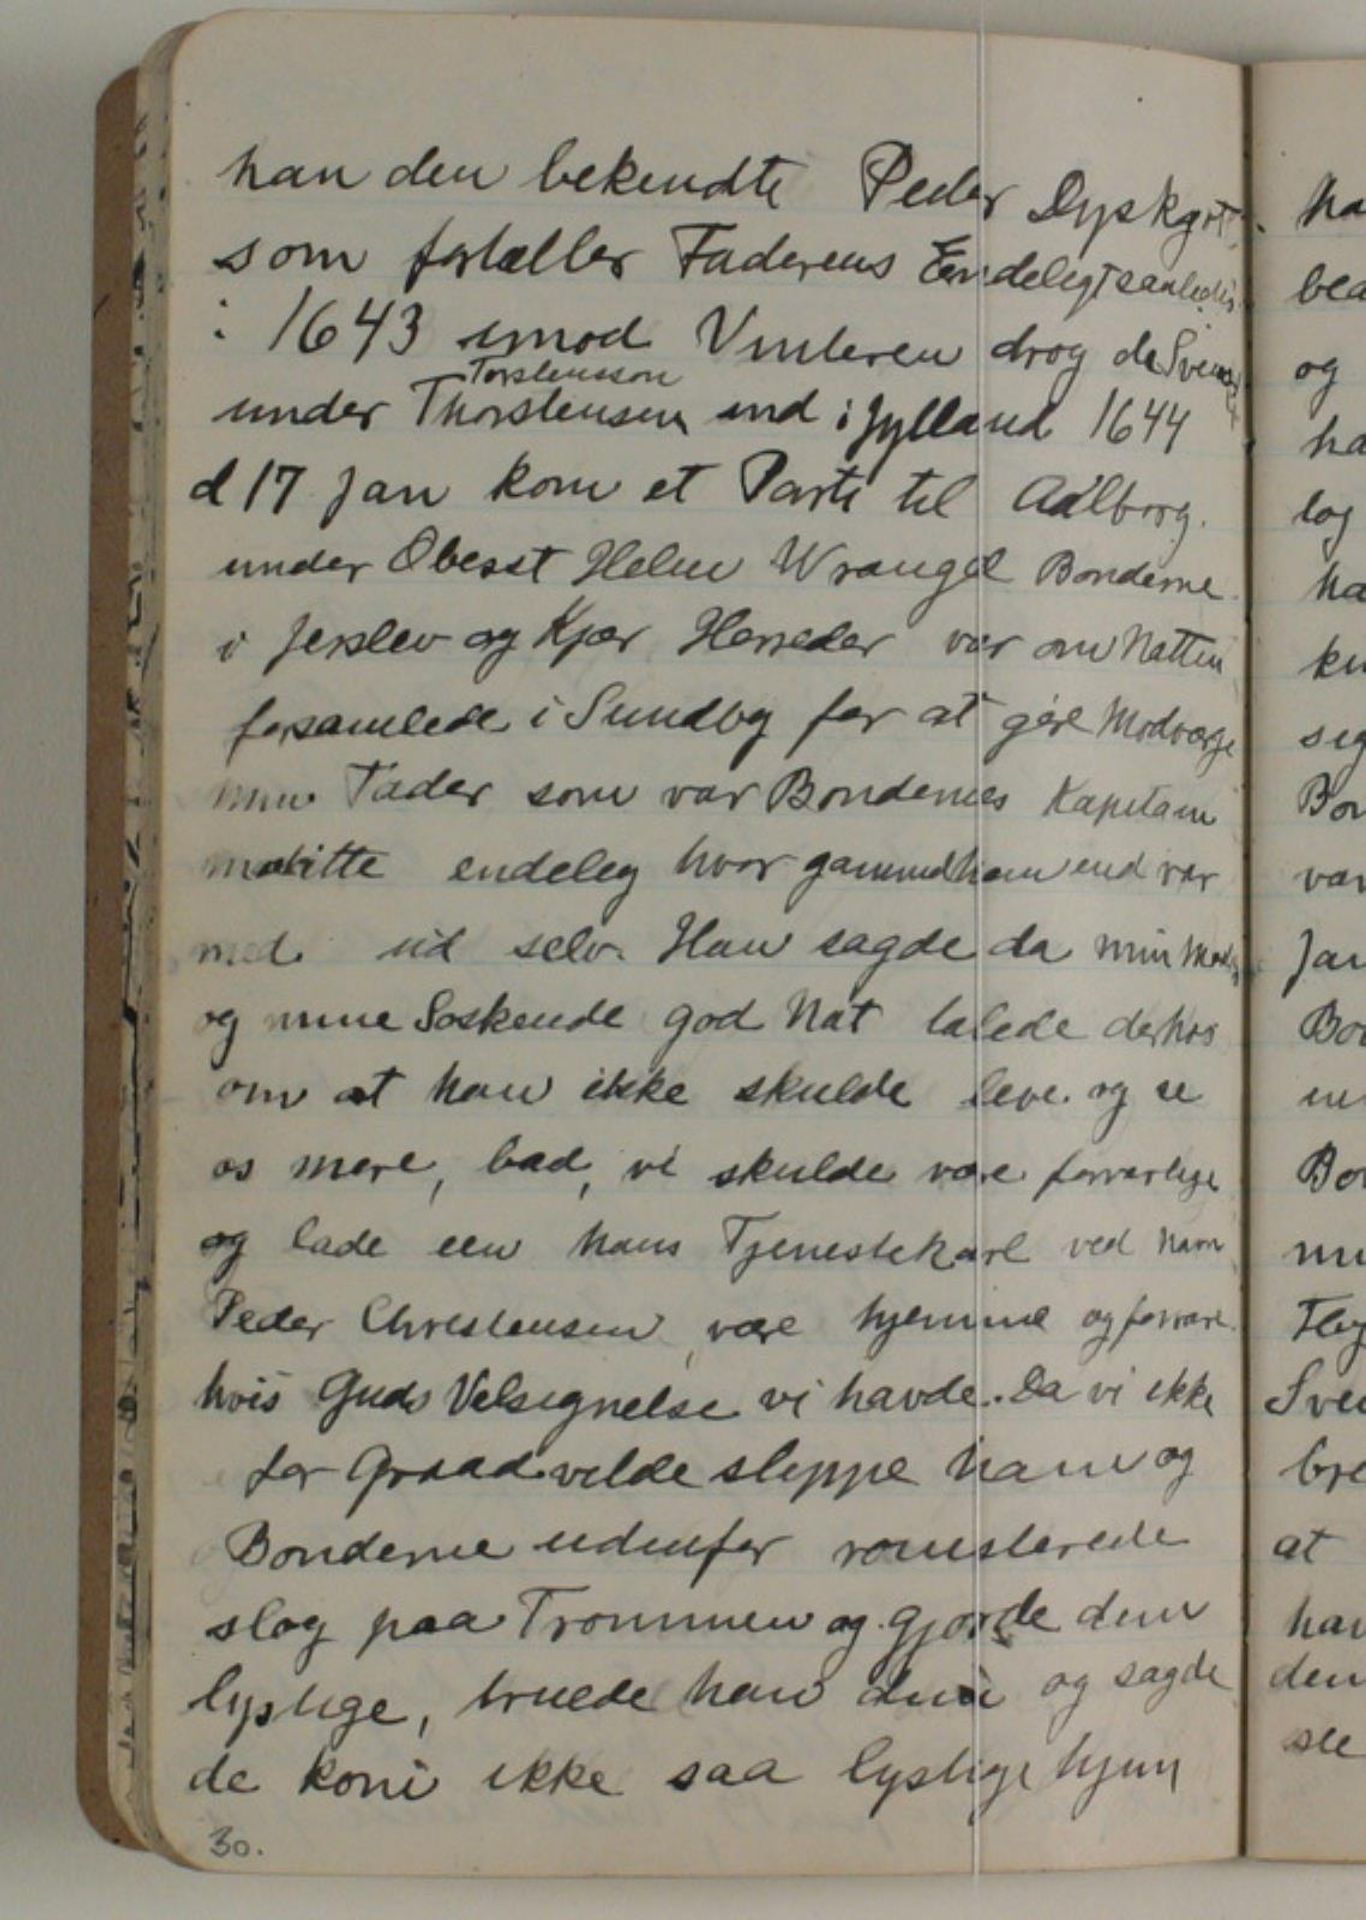 han den bekendte Peder Dyskjøt,
som fortæller Faderens Endeligt saaledes
: 1643 imod Vinteren drog de Svenske
Torstensson
under Thorstensen ind i Jylland 1644
d 17 Jan kom et Parti til Aalborg.
under Obesst Helm Wrangel Bønderne
i Jerslev og Kjær Herreder var om Natten
forsamlede i Sundby for at gøre Modværge
min Fader som var Bøndernes Kapitain
maatte endeleg hvor gammel han end var
med ud selv. Han sagde da min Moder
og mine Søskende god Nat talede derhos
om at han ikke skulde leve og se
os mere, bad, vi skulde være forvarlige
og lade een hans Tjenestekarl ved Navn
Peder Christensen være hjemme og forvare
hvis Guds Velsignelse vi havde. Da vi ikke
for Graad vilde slippe ham og
Bønderne udenfor romsterede
slog paa Trommen og gjorde dem
lystige, truede han dem og sagde
de kom ikke saa lystige hjem
30.
ha
og
ha
log
ha
sig
var
Jan
at
han
den